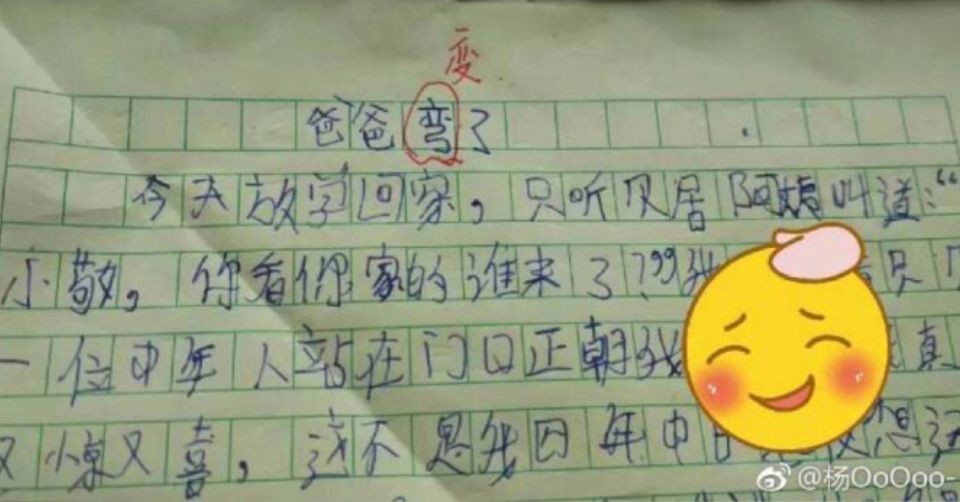 变
爸爸弯了
今天放学回家，只听贝居阿姨叫道：“
小敬，你看你家的谁来了？”我 只
一位中年人站在门口正朝我 真
又惊又喜，这不是我四年中 想
@杨OoOoo-